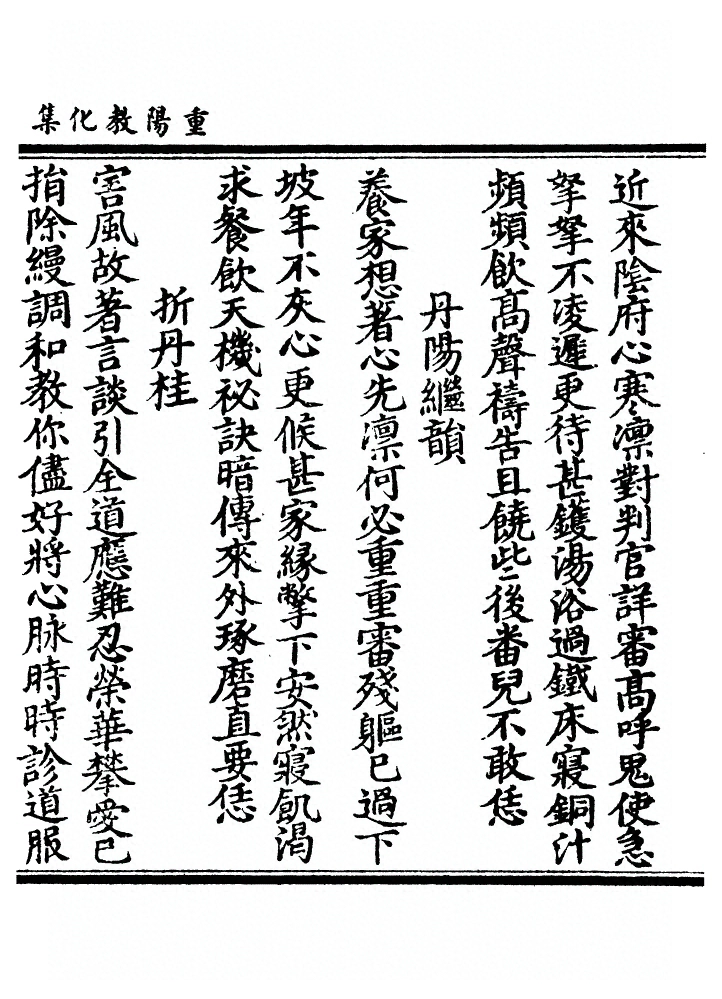 重陽教化集
近來陰府心寒凛對判官詳審高呼鬼使急
拏拏不凌遲更待甚鑊湯浴過鐵床寢銅汁
頻頻飲高聲禱告且饒些後番兒不敢恁
丹陽繼韻
養家想著心先凛何必重重審殘軀已過下
坡年不灰心更候甚家緣撆下安然寢飢渴
求餐飲天機祕訣暗傳來外琢磨直要恁
折丹桂
害風故著言談引全道應難忍榮華攀愛已
指除縵調和教你儘好將心脉時時診道服